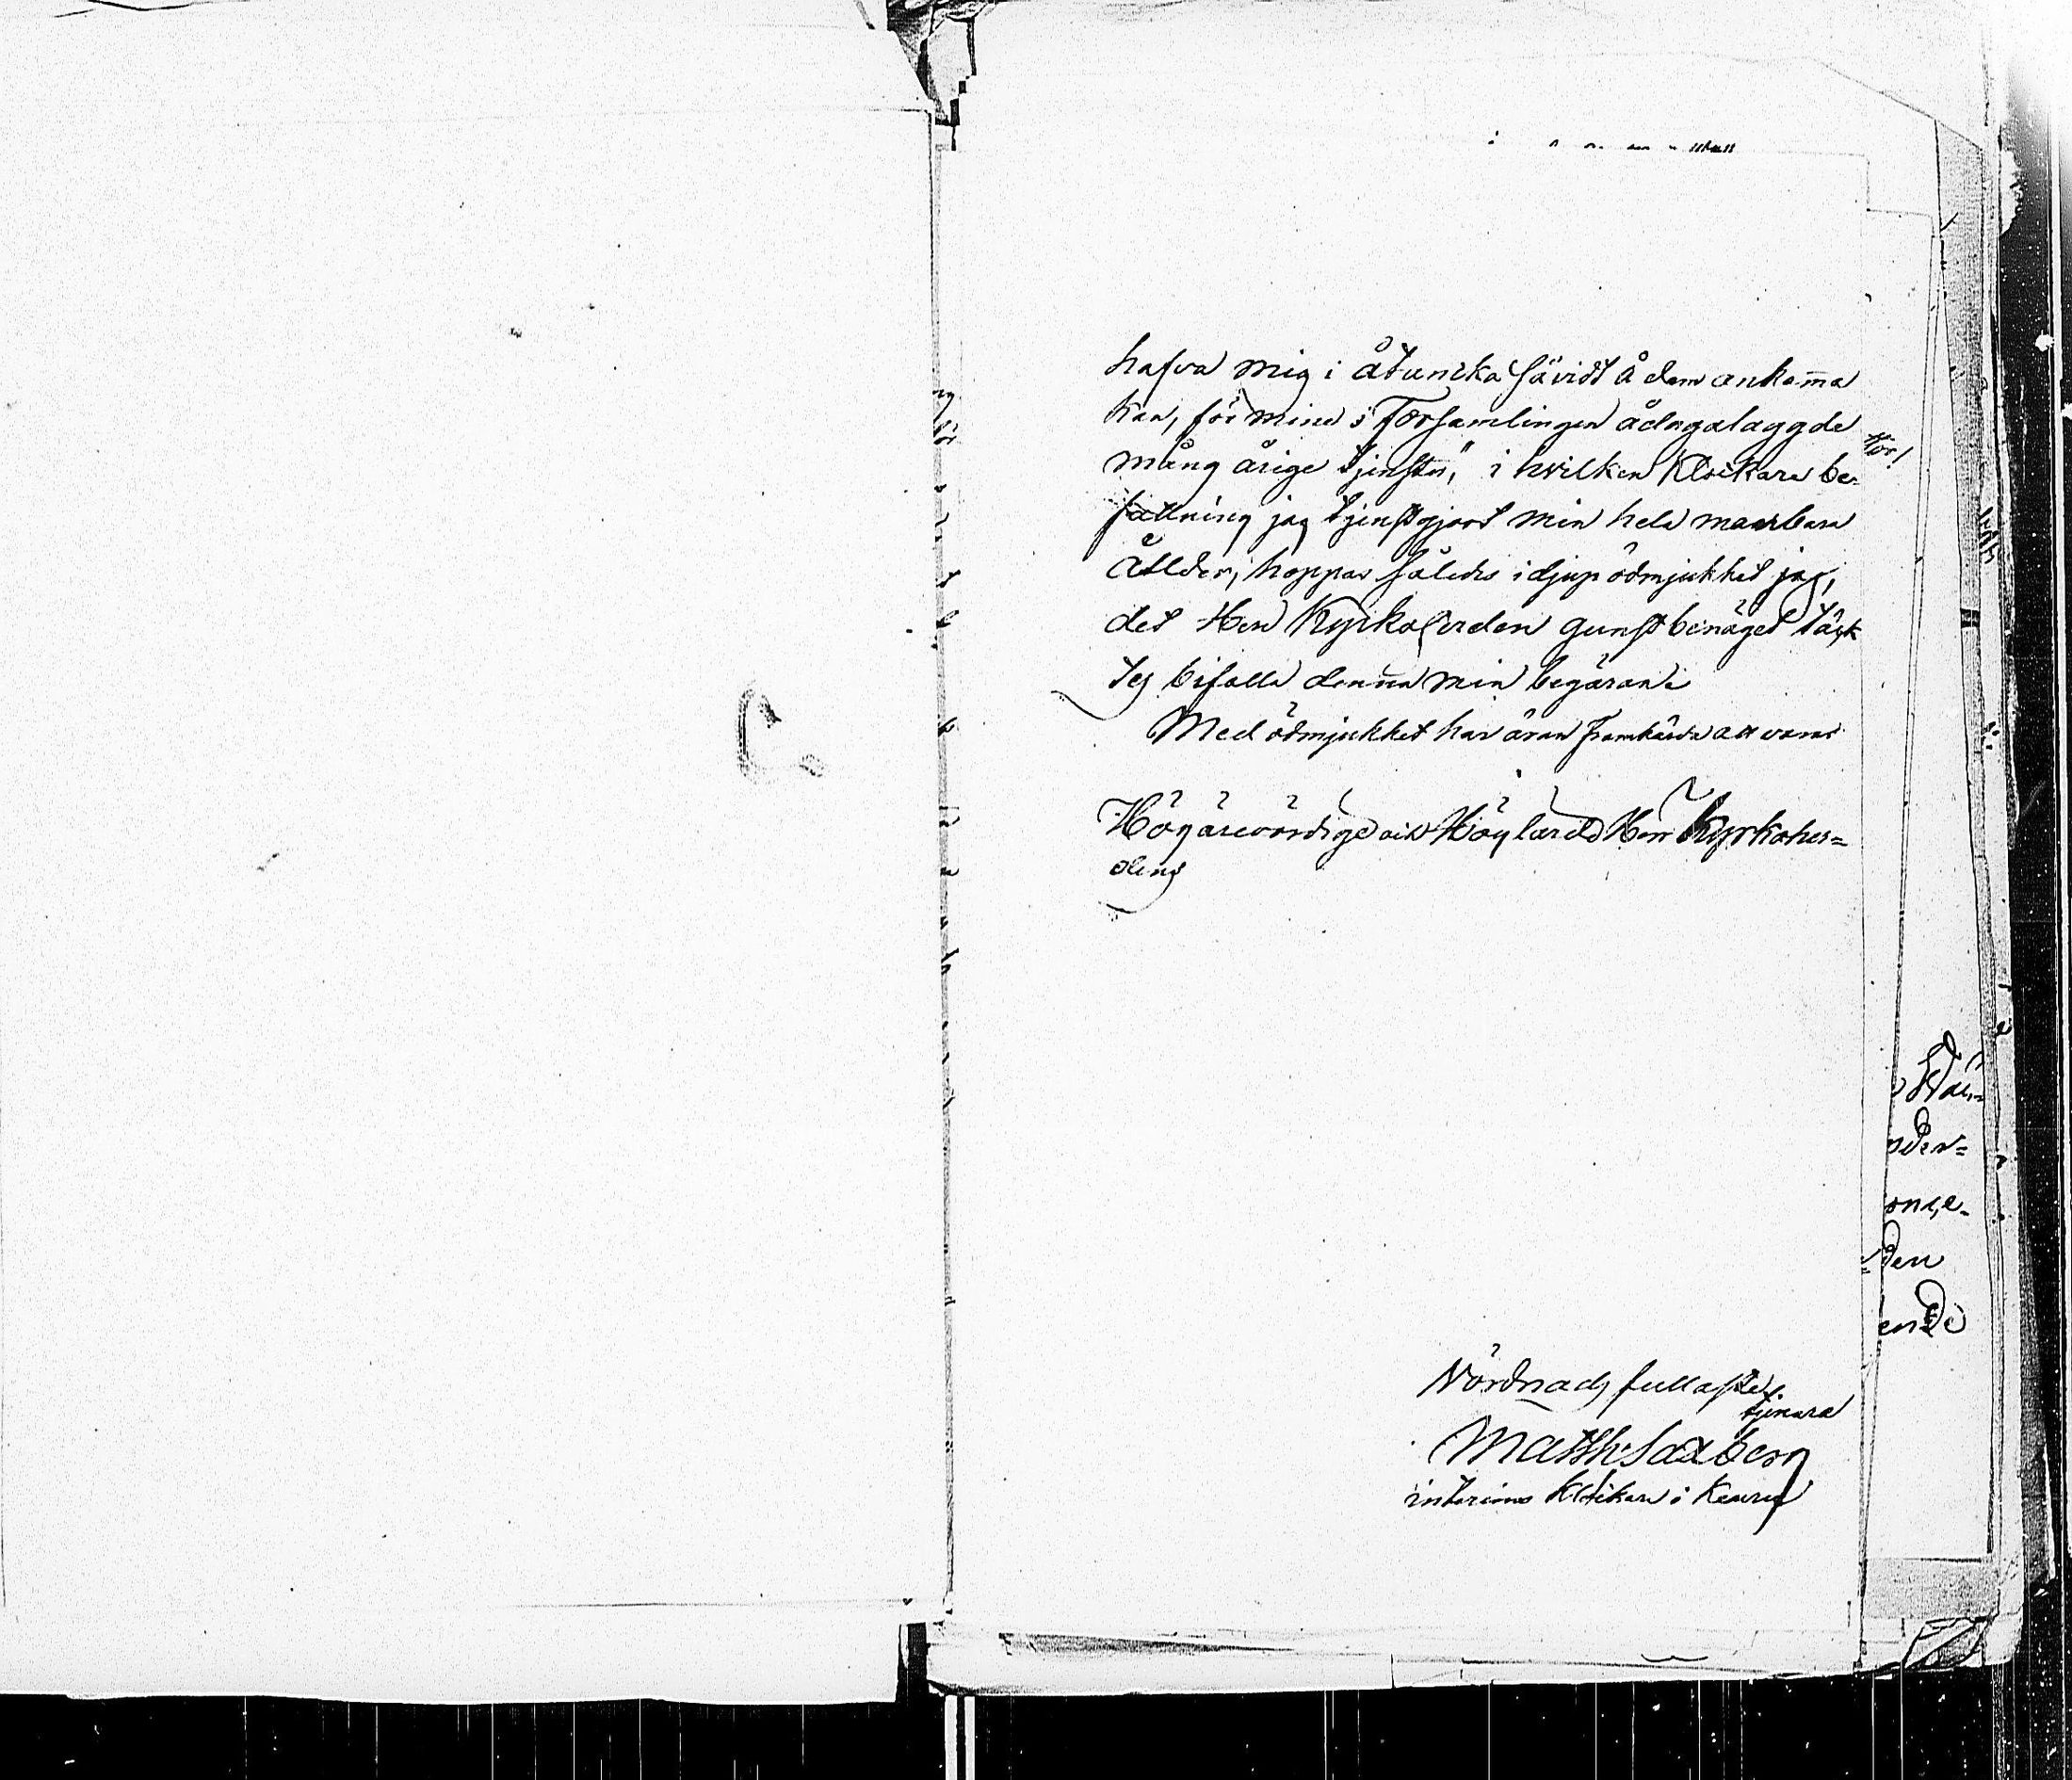 C.
hafva mig i åtancka såvidt å dem ankom̅a
kan, för mine i Församlingen ådagalaggde
mång årige tjenster, i hvilken Klockare be-
fattning jag tjenstgjort min hela manbara
Ållder, hoppas således i djup ödmjukhet jag,
det Herr Kyrkoherden gunstbenäget täck
tes bifalla denna min begäran.
Med ödmjukhet har äran framhärda att vara
Högärevördige och Höglärde Herr Kyrkoher=
dens
Vördnads fullaste
tjenare
Matth. Saxberg
interims Klockare i Keuru
nder=
den
ende